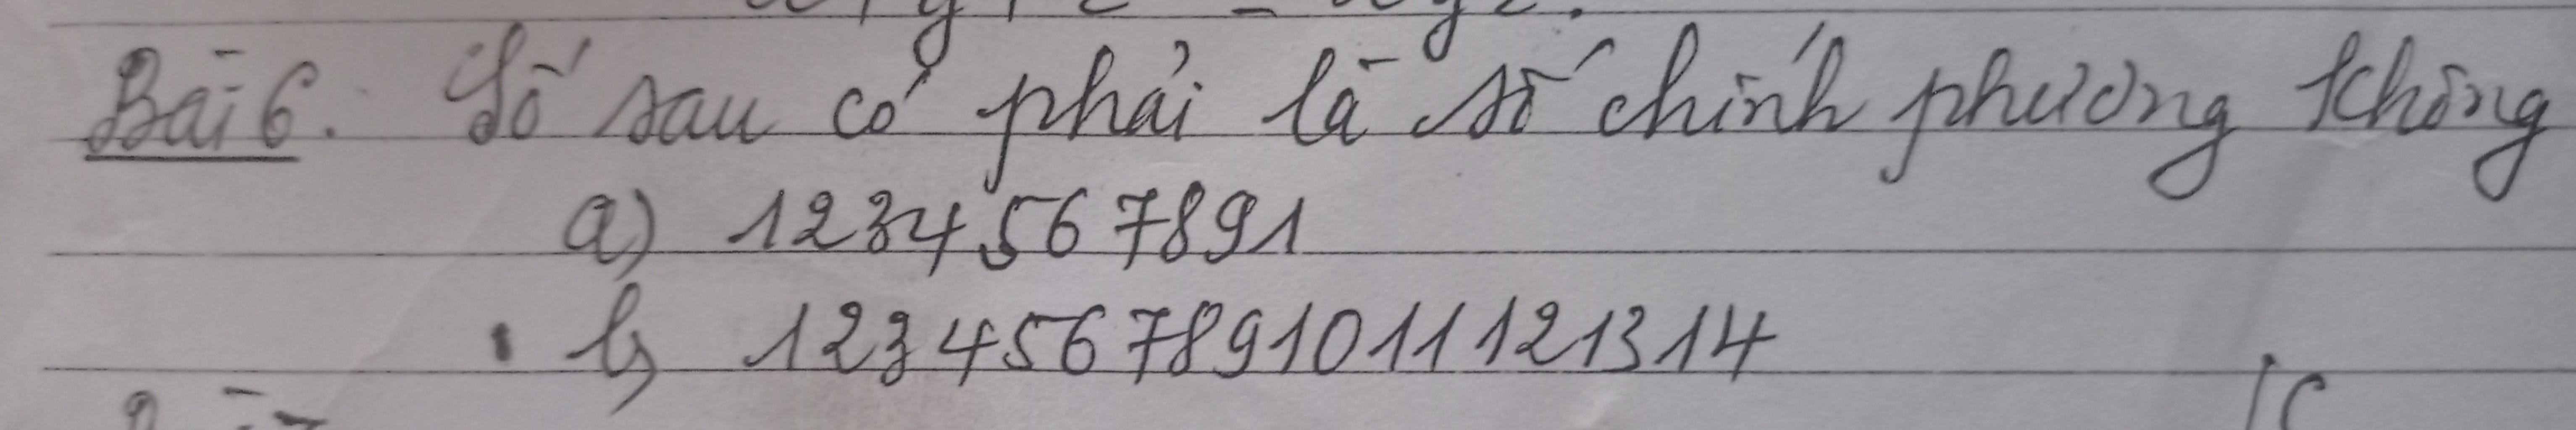 Bài 6. Số sau có phải là số chính phương không
a) 1234567891
b) 1234567891011121314